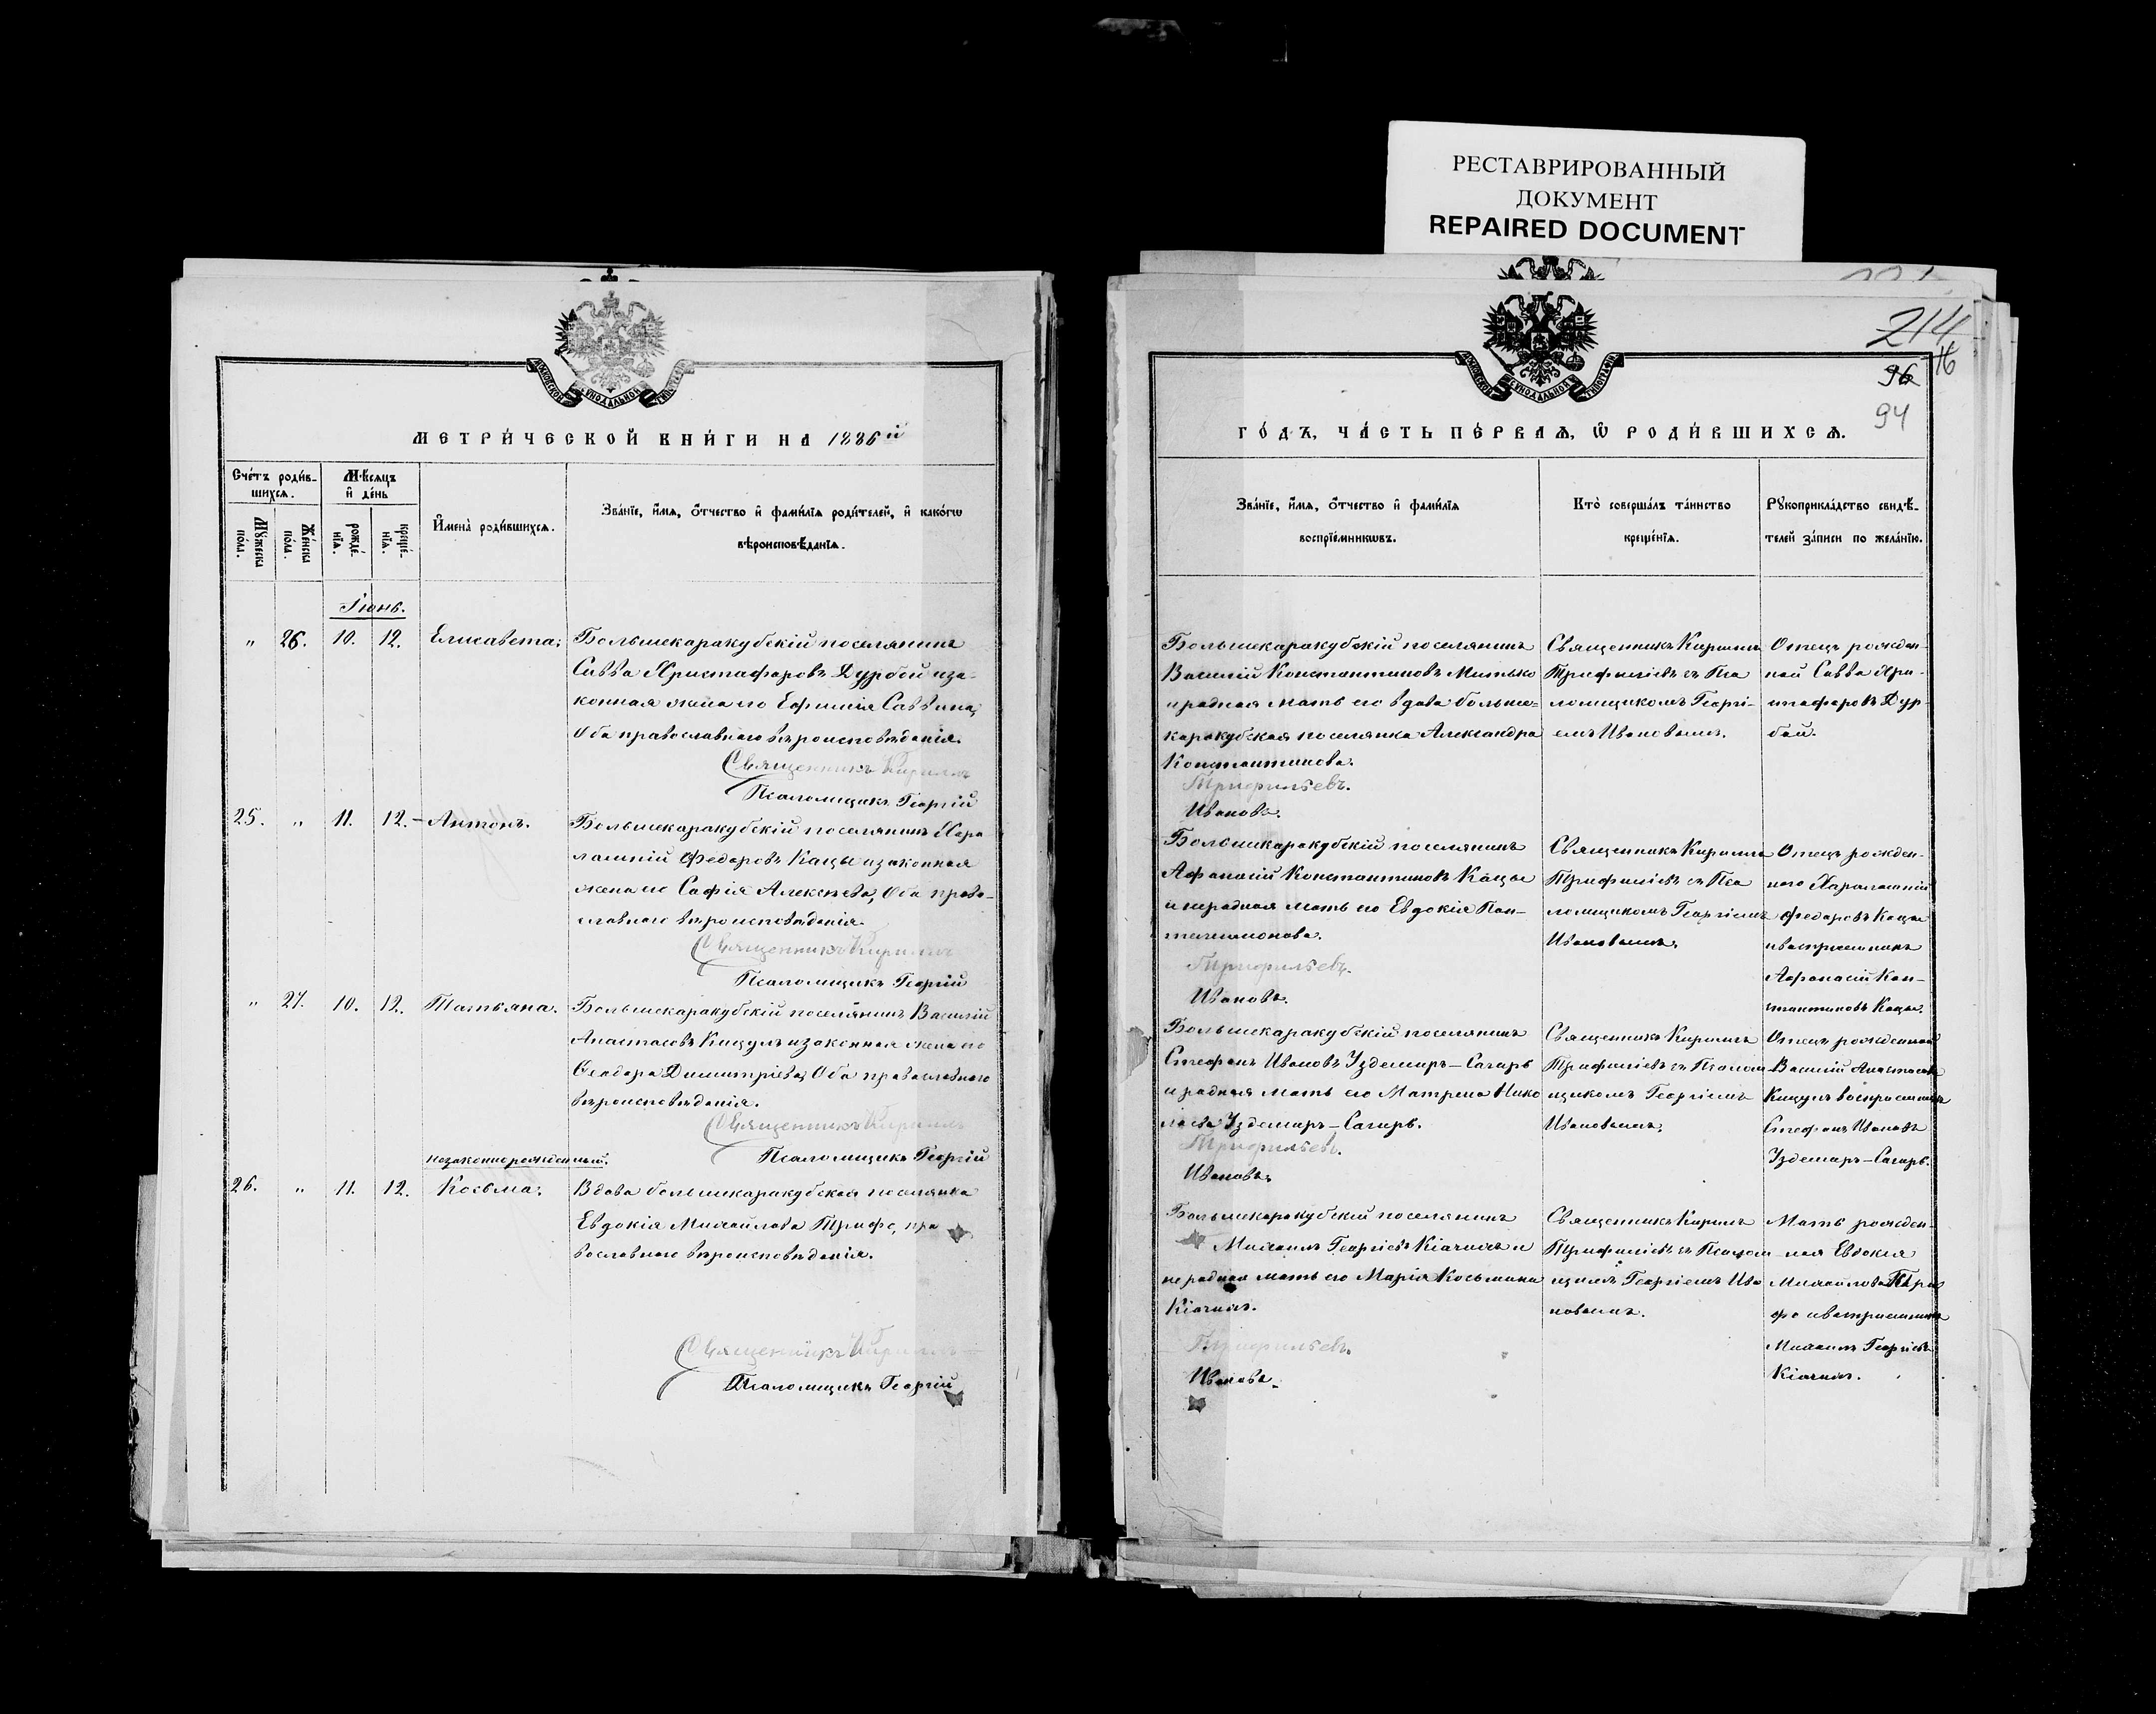 РЕСТАВРИРОВАННЫЙ
ДОКУМЕНТ
REPAIRED DOCUMENT
МОСКОВСКОЙ СУНОДАЛЬНОЙ ТИПОГРАФІИ
МЕТРИ́ЧЕСКОЙ КНИ́ГИ НА 1886й
Сче́тъ роди́в-
шихся.
Мѣсяцъ
и҆ де́нь
Мꙋ́жеска
по́ла.
Же́нска
по́ла.
рожде́
нїѧ.
креще́-
нїѧ.
И҆мена̀ роди́вшихсѧ.
Зва́нїе, и҆́мѧ, ѻ҆́тчество и҆ фамн́лїѧ роди́телей, и҆ како́гѡ
вѣроисповѣ́данїѧ.
Іюнь.
„ 26. 10. 12. Елисавета.
Большекаракубскій поселянинъ
Савва Христафоровъ Дурбой иза-
конная жена его Ефимія Саввина,
Оба православнаго вѣроисповѣданія.
Священникъ Кириллъ
Псаломщикъ Георгій
25. „ 11. 12. Антонъ.
Большекаракубскій поселянинъ Хара
лампій Федоровъ Кацы изаконная
жена его Софія Алексѣева, Оба право-
славнаго вѣроисповѣданія.
Священникъ Кириллъ
Псаломщикъ Георгій
„ 27. 10. 12. Татьяна.
Большекаракубскій поселянинъ Василій
Анастасовъ Кицулъ изаконная жена его
Феодора Димитріева, Оба православнаго
вѣроисповѣданія.
Священникъ Кириллъ
Псаломщикъ Георгій
незаконнорожденный.
26. „ 11. 12. Косьма.
Вдова большекаракубская поселянка
Евдокія Михайлова Трифо, пра
вославнаго вѣроисповѣданія.
Священникъ Кириллъ
Псаломщикъ Георгій
214
96
94
МОСКОВСКОЙ СУНОДАЛЬНОЙ ТИПОГРАФІИ
ГО́ДЪ, ЧА́СТЬ ПЕ́РВАѦ, Ѡ҆ РОДИ́ВШИХСѦ.
Зва́нїе, и҆́мѧ, ѻ҆́тчество и҆ фами́лїѧ
воспрїе́мникѡвъ.
Кто̀ соверша́лъ та́инство
креще́нїѧ.
Рꙋкоприкла́дство свидѣ́-
телей за́писи по жела́нїю.
Большекаракубскій поселянинъ
Василій Константиновъ Митько
и родная мать его вдова больше-
каракубская поселянка Александра
Константинова.
Трифильевъ.
Ивановъ.
Священникъ Кириллъ
Трифиліевъ съ Пса
ломщикомъ Георгі-
емъ Ивановымъ.
Отецъ рожден-
ной Савва Хри-
стафоровъ Дур-
бой.
Большекаракубскій поселянинъ
Афанасій Константиновъ Кацы
и неродная мать его Евдокія Пан-
телеимонова.
Трифильевъ.
Ивановъ.
Священникъ Кириллъ
Трифиліевъ съ Пса
ломщикомъ Георгіемъ
Ивановымъ.
Отецъ рожден-
наго Харалампій
Федоровъ Кацы
ивоспріемникъ
Афанасій Кон-
стантиновъ Кацы.
Большекаракубскій поселянинъ
Стефанъ Ивановъ Уздемиръ-Сагиръ
и родная мать его Матрена Нико
лаева Уздемиръ-Сагиръ.
Трифильевъ.
Ивановъ.
Священникъ Кириллъ
Трифиліевъ съ Псалом
щикомъ Георгіемъ
Ивановымъ.
Отецъ рожденной
Василій Анастасовъ
Кицулъ воспріемникъ
Стефанъ Ивановъ
Уздемиръ-Сагиръ.
Большекаракубскій поселянинъ
Михаилъ Георгіевъ Кіачихъ и
неродная мать его Марія Косьмина
Кіачихъ.
Трифильевъ.
Ивановъ.
Священникъ Кириллъ
Трифиліевъ съ Псалом
щикомъ Георгіемъ Ива
новымъ.
Мать рожден-
ная Евдокія
Михайлова Три
фо ивоспріемникъ
Михаилъ Георгіевъ
Кіачихъ.